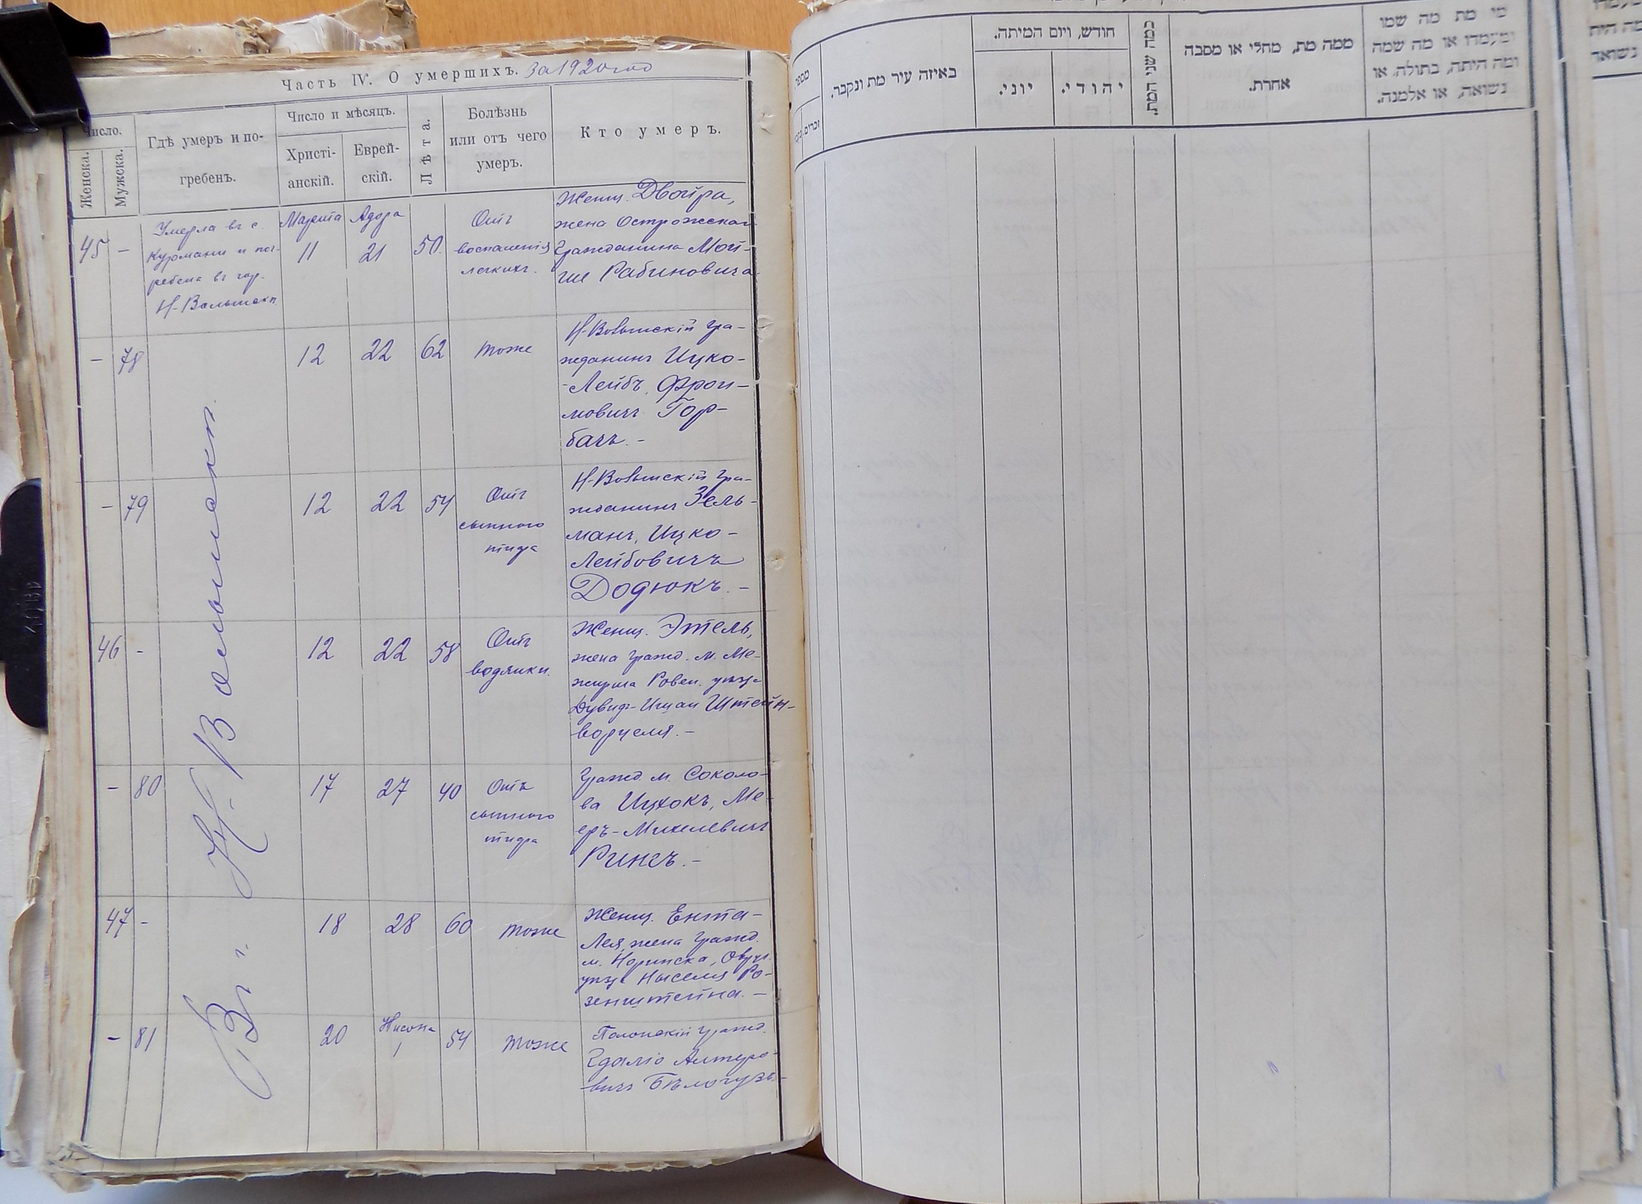 Часть IV. О умершихъ. За 1920 год
Число.
Женска.
Мужска.
Гдѣ умеръ и по-
гребенъ.
Число и мѣсяцъ.
Христі-
анскій.
Еврей-
скій.
Лѣта.
Болѣзнь
или отъ чего
умеръ.
Кто умеръ.
45 -
Умерла въ с
Курмани и пог-
ребена въ гор.
Н-Волынскѣ
Марта
11
Адора
21
50
Отъ
воспаленія
легкихъ.
Женщ. Двойра,
жена Острожскаго
гражданина Мой-
ше Рабиновича
- 78
12
22
62
тоже
Н-Волынскій гра-
жданинъ Ицко-
-Лейбъ, Фрои-
мовичъ Гор-
бачъ. -
- 79
12
22
54
Отъ
сыпного
тифа
Н-Волынскій гра-
жданинъ Зель-
манъ, Ицко-
Лейбовичъ
Додюкъ. -
46 -
12
22
58
Отъ
водянки.
Женщ. Этель,
жена гражд. м. Ме-
жирича Ровен. уѣзда
Дувид-Ицки Штейн-
ворцеля. -
- 80
17
27
40
Отъ
сыпного
тифа
Гражд. м. Соколо-
ва Ицхокъ, Ме-
еръ-Михелевичъ
Рингъ. -
47 -
18
28
60
тоже
Женщ. Ента-
Лея, жена гражд.
м. Норинска, Овруч.
уѣзда Ныселя Ро-
зенштейна. -
- 81
20
Нисона
1
54
тоже
Полонскій гражд.
Гдалiо Алтеро-
вичъ Бѣлогузъ-
Въ г. Н-Волынскѣ.
מספר
זכרים
באיזה עיר מת ונקבר.
חודש, ויום המיתה.
יוני.
יהודי.
כמה שני המת.
ממה מת, מחלי או מסבה
אחרת.
מי מת מה שמו
ומעמדו או מה שמה
ומה היתה, בתולה, או
נשואה, או אלמנה.